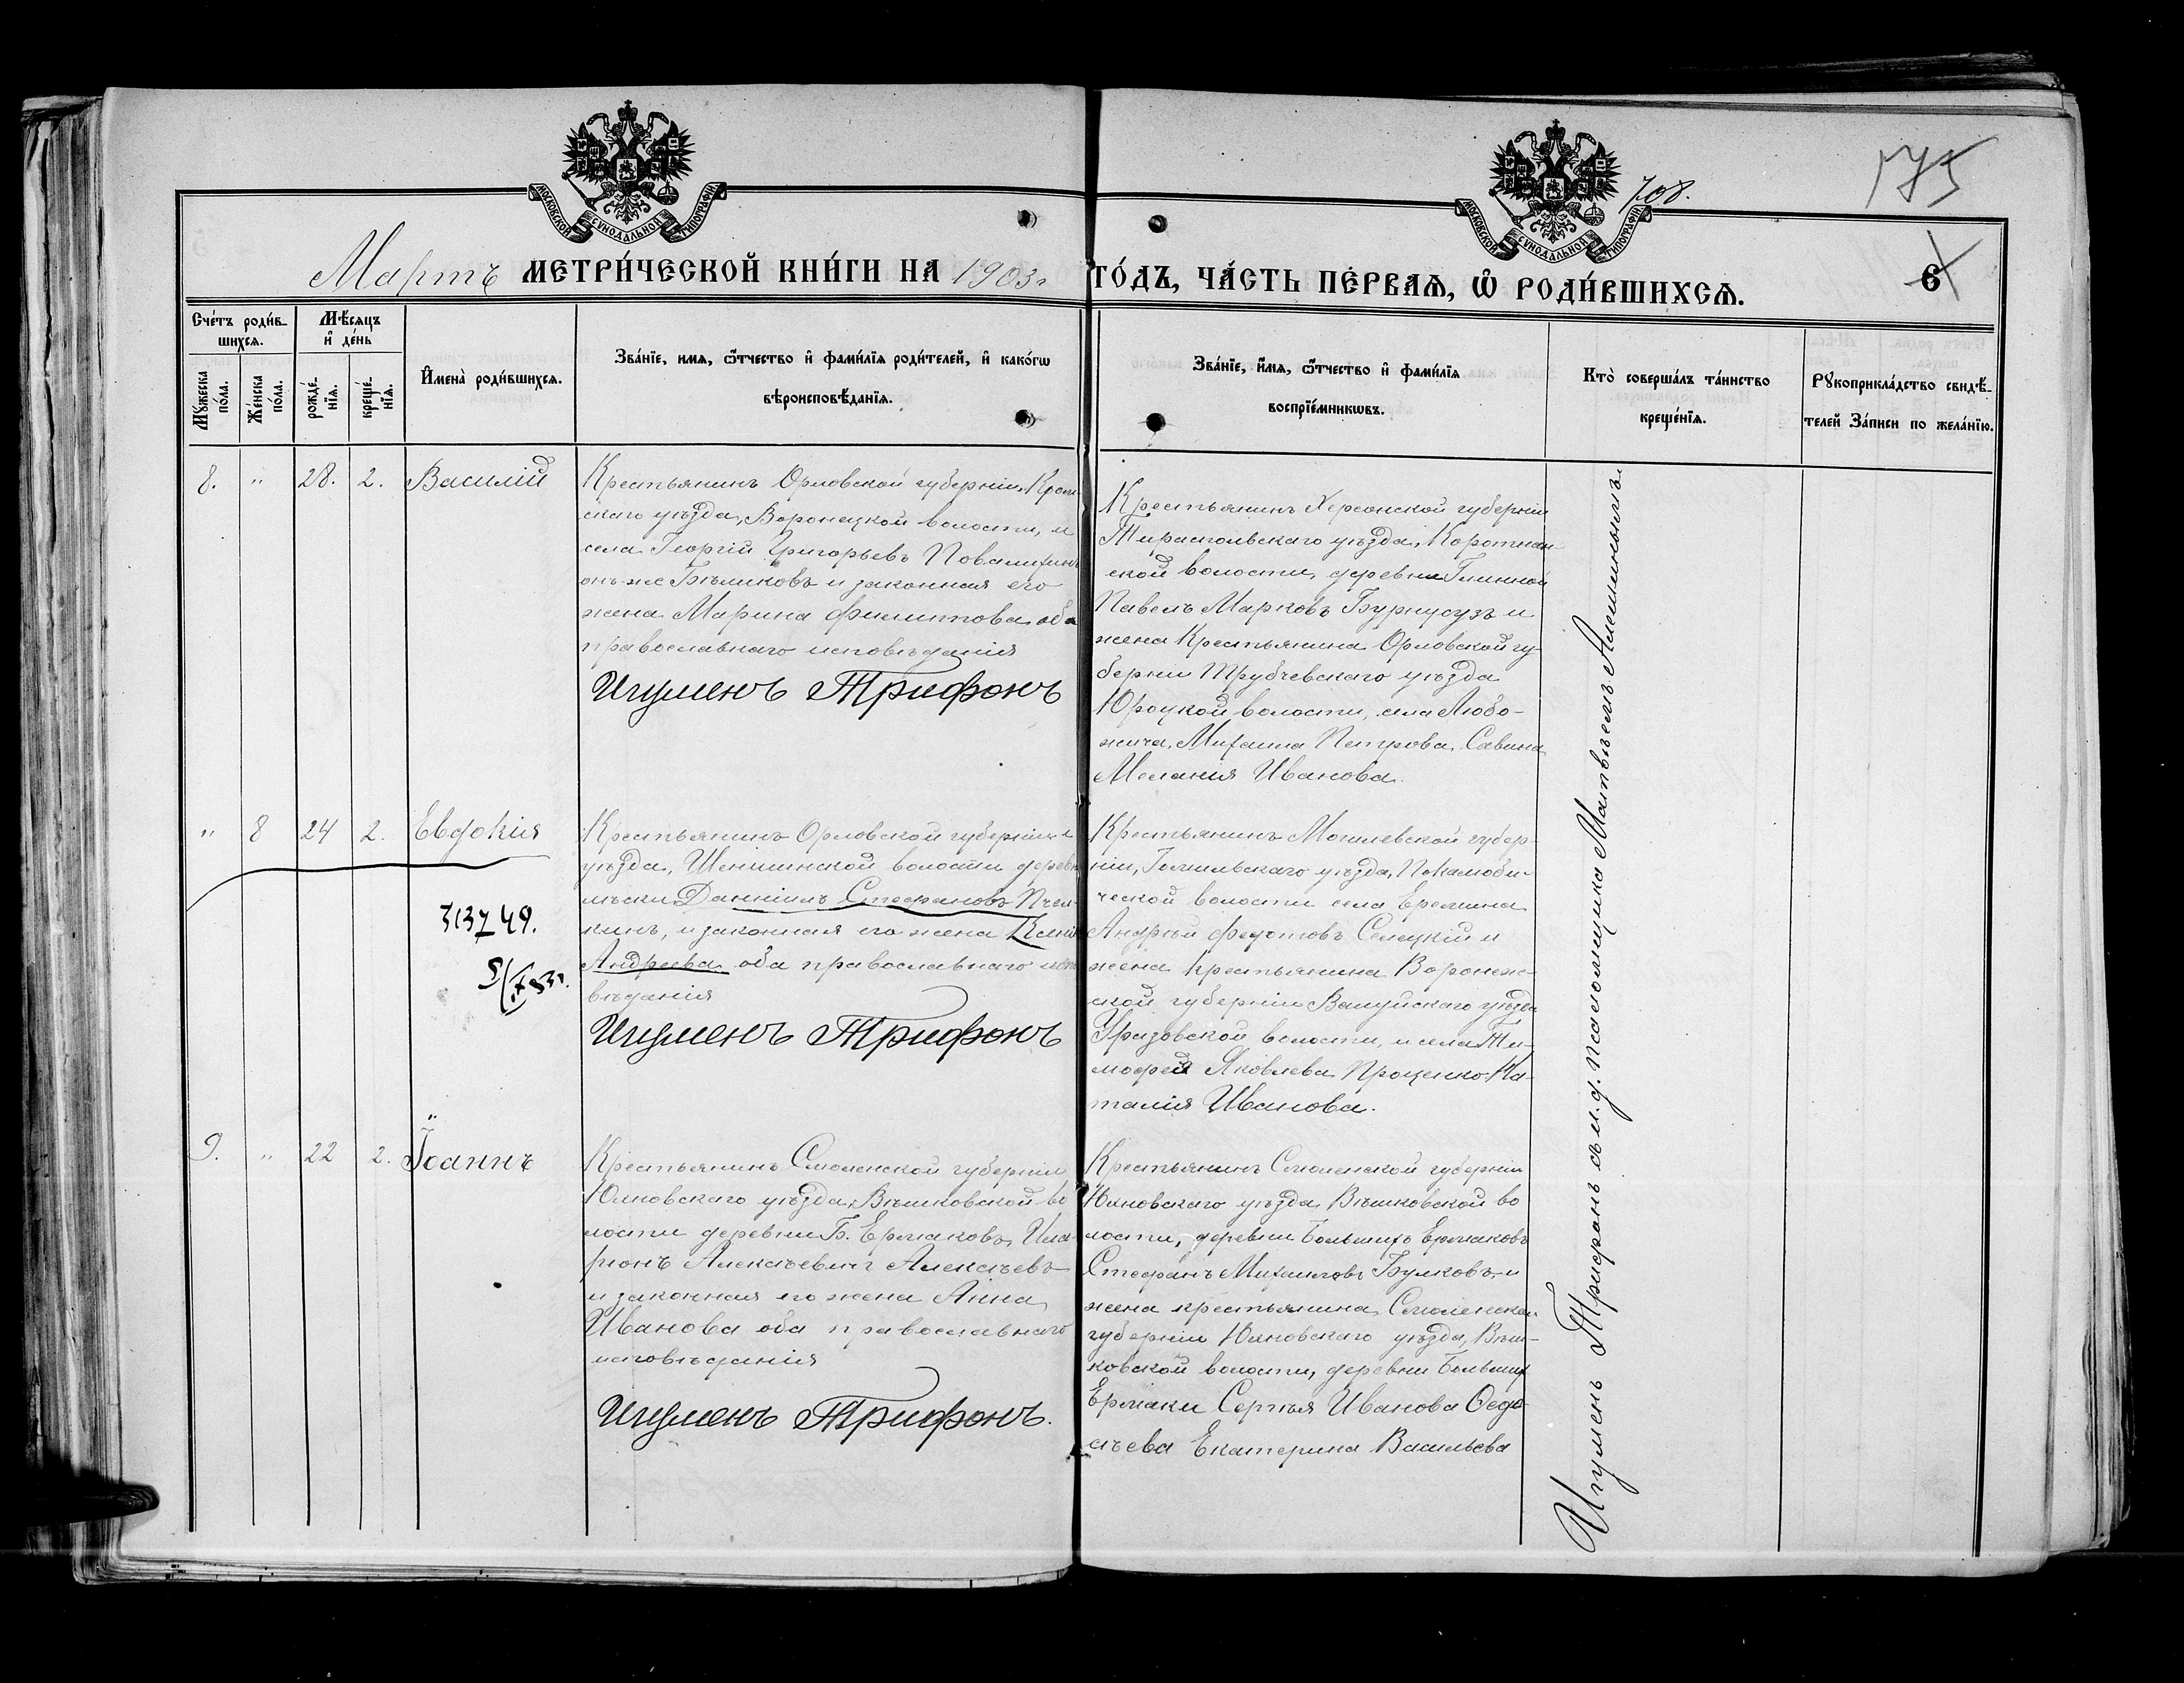 175
708.
МОСКОВСКОЙ СУНОДАЛЬНОЙ ТИПОГРАФIИ
МОСКОВСКОЙ СУНОДАЛЬНОЙ ТИПОГРАФIИ
Мартъ МЕТРИ́ЧЕСКОЙ КНИ́ГИ НА 1903 г
ГО́ДЪ, ЧА́СТЬ ПЕ́РВАѦ, Ѿ РОДИ́ВШИХСѦ.
6
Сче́тъ роди́в-
шихсѧ.
Мѣ́сѧцъ
и҆ де́нь
Мꙋ́жеска
по́ла.
Же́нска
по́ла.
рожде́-
нїѧ.
креще́-
нїѧ.
И҆мена̀ роди́вшихсѧ.
Зва́нїе, имѧ, ѻ҆́тчество и҆ фами́лїѧ роди́телей, и҆ како́гѡ
вѣроисповѣ́данїѧ.
Зва́нїе, и҆́мѧ, ѻ҆́тчество и҆ фами́лїѧ
воспрїе́мникѡвъ.
Кто̀ соверша́лъ та́инство
креще́нїѧ.
Рꙋкоприкла́дство свидѣ́-
телей За́писи по жела́нїю.
8. " 28. 2. Василій
Крестьянинъ Орловской губерніи, Кром-
скаго уѣзда, Воронецкой волости, и
села Георгій Григорьевъ
онъ-же Бѣликовъ и законная его
жена Марина Филиппова оба
православнаго исповѣданія
Игуменъ Трифонъ
Крестьянинъ Херсонской губерніи
Тираспольскаго уѣзда, Коротнян-
ской волости, деревни Глинной
Павелъ Марковъ и
жена Крестьянина Орловской гу-
берніи Трубчевскаго уѣзда
Юроцкой волости, села Любо-
жича, Михаила Петрова Савина
Меланія Иванова.
" 8 24 2. Евдокія
Крестьянинъ Орловской губерніи и
уѣзда, Шеншинской волости дерев
Даніилъ Стефановъ Пчел-
кинъ, и законная его жена Ксенія
Андреева оба православнаго испо
вѣданія
Игуменъ Трифонъ
313749.
Крестьянинъ Могилевской губер-
ніи, Гомельскаго уѣзда,
ческой волости села Еремина
Андрей Федотовъ Селецкій и
жена крестьянина Воронеж-
ской губерніи Валуйскаго уѣзда
Уразовской волости, и села Ти-
мофея Яковлева Проценко На-
талія Иванова.
9. " 22 2. Іоаннъ
Крестьянинъ Смоленской губерніи
Юхновскаго уѣзда, Вѣшковской во
лости деревни Б. Ермаковъ, Ила-
ріонъ Алексѣевичъ Алексѣевъ
и законная его жена Анна
Иванова оба православнаго
исповѣданія
Игуменъ Трифонъ.
Крестьянинъ Смоленской губерніи
Юхновскаго уѣзда Вѣшковской во
лости, деревни Большихъ Ермаковъ
Стефанъ Михаиловъ Булковъ, и
жена крестьянина Смоленской
губерніи Юхновскаго уѣзда, Вѣш-
ковской волости, деревни Большихъ
Ермаки Сергѣя Иванова Ѳедо-
сѣева Екатерина Васильева
Игуменъ Трифонъ съ и.д. псаломщика Матвѣемъ Алешинымъ.